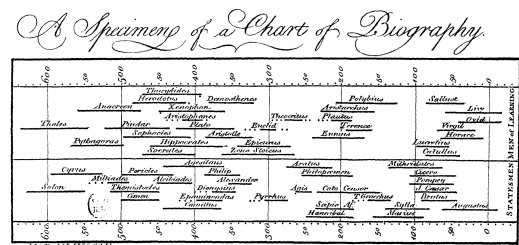 A Specimen of a Chart of Biography.
600 50 500 50 400 50 300 50 200 50 100 50 0
Thucydides
Herodotus Demosthenes Polybius Sallust
Anacreon Xenophon Aristarchus Livy
Aristophanes Theocritus Plautus Ovid
Thales Pindar Plato Euclid Terence Virgil
Sophocles Aristotle Ennius Horace
Pythagoras Hippocrates Epicurus Lucretius
Socrates Zeno Stoicus Catullus
MEN of LEARNING
Agesilaus Aratus Mithridates
Cyrus Pericles Philip Philopoemen Cicero
Miltiades Alcibiades Alexander Pompey
Solon Themistocles Dionysius Agis Cato Censor J. Caesar
Cimon Epaminondas Pyrrhus T. Gracchus Brutus
Camillus Scipio Af. Sylla Augustus
Hannibal Marius
STATESMEN
600 50 500 50 400 50 300 50 200 50 100 50 0